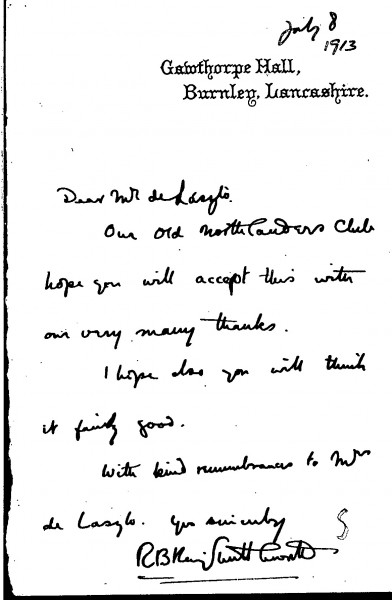 July 8
1913
Gawthorpe Hall,
Burnley, Lancashire.
Dear Mr de Laszlo.
Our Old Northlanders Club
hope you will accept this with
our very many thanks.
I hope also you will think
it fairly good.
With kind remembrances to Mrs
de Laszlo. Yrs sincerely